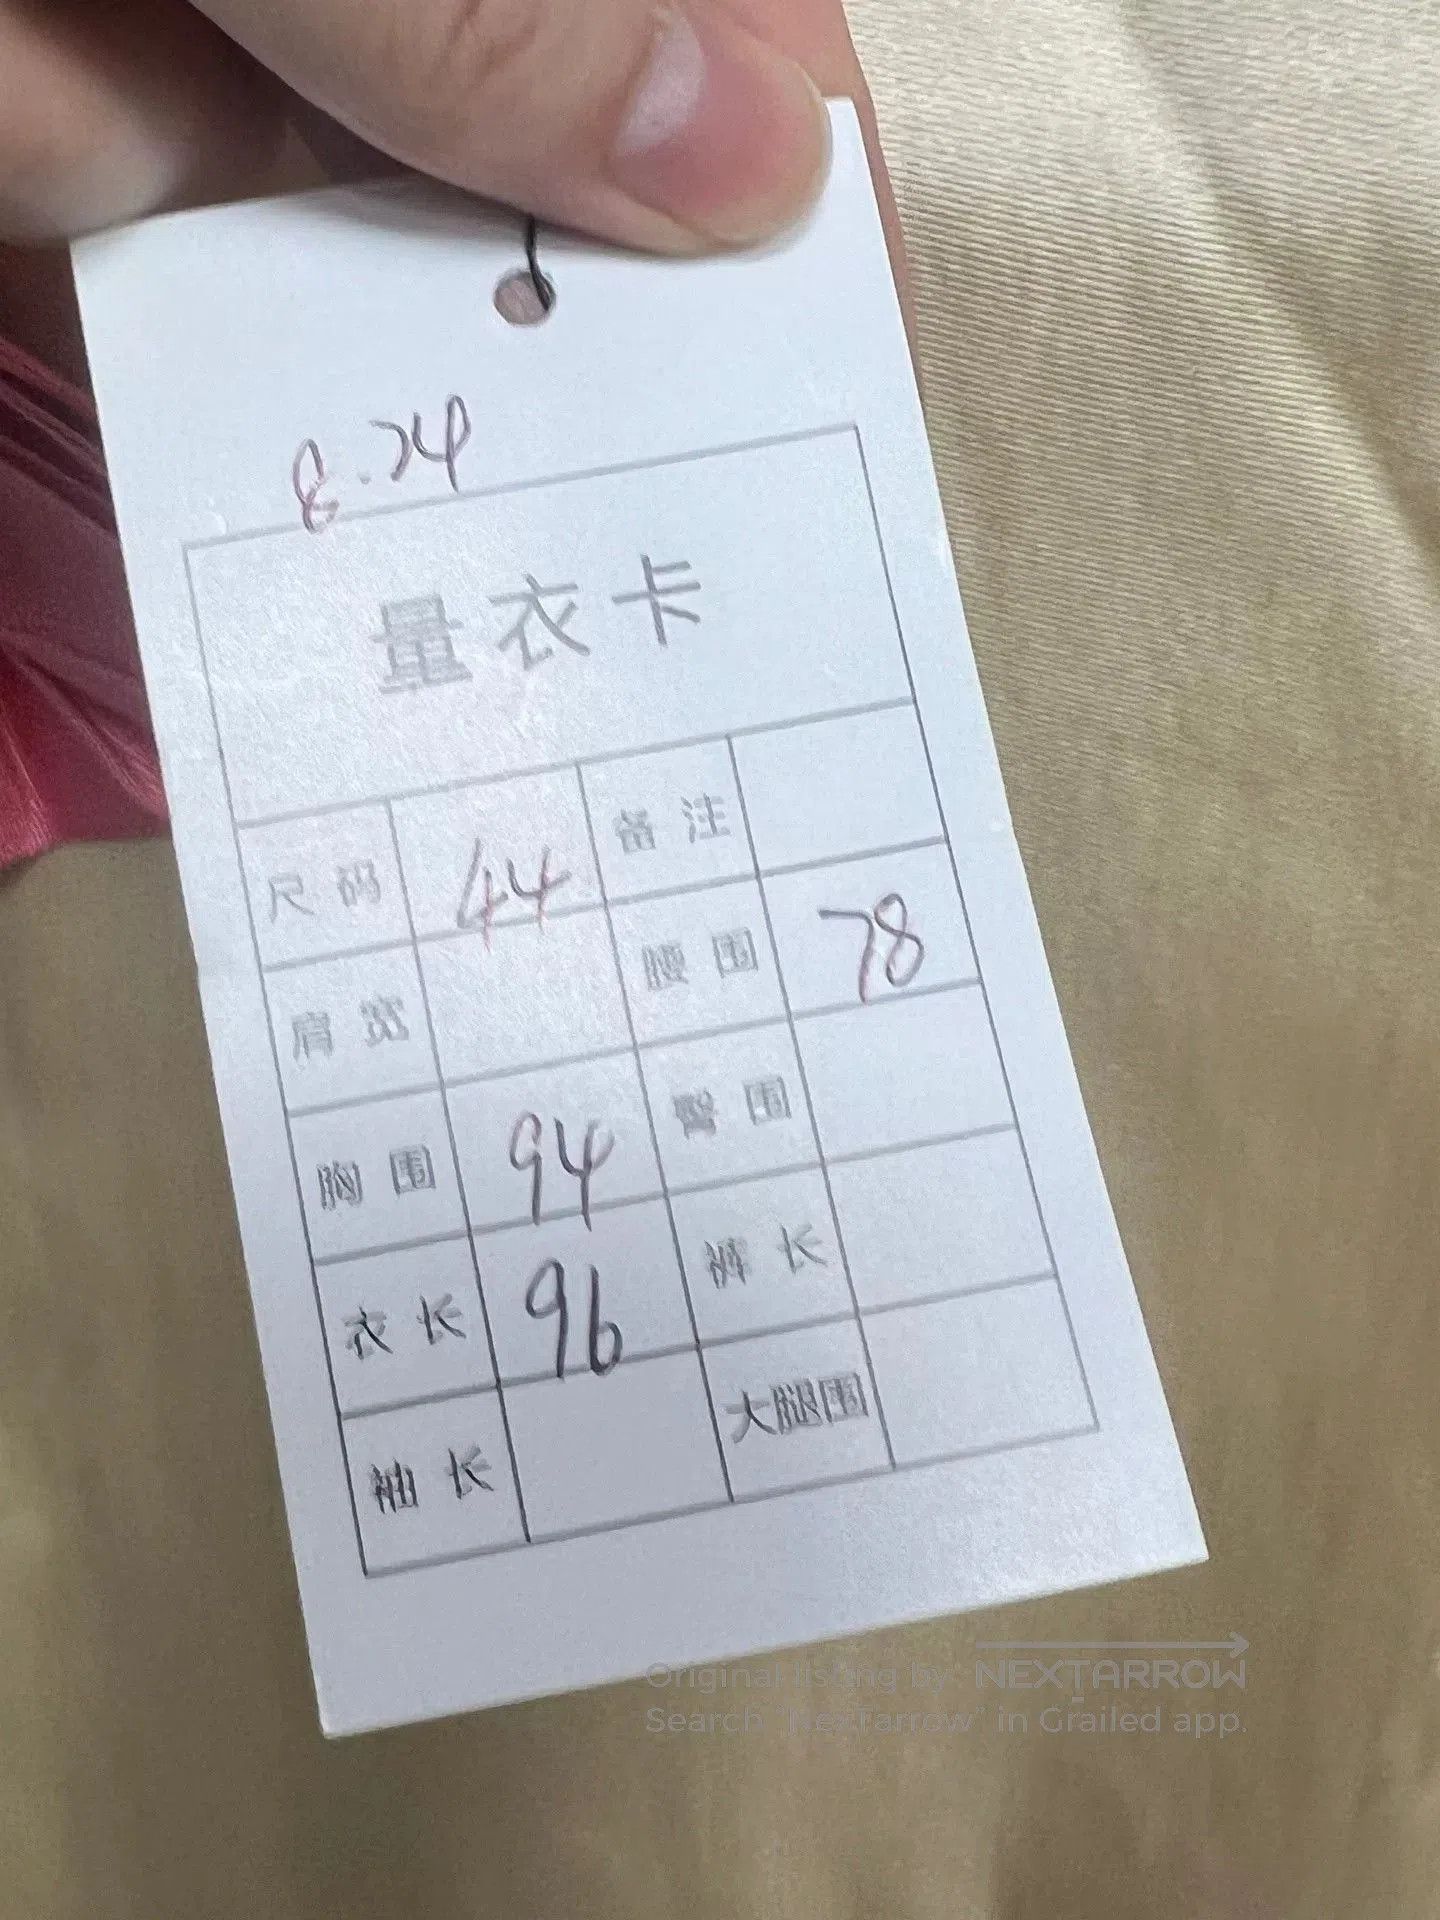 8.24
量衣卡
尺码 44 备注
肩宽 腰围 78
胸围 94 臀围
衣长 96 裤长
袖长 大腿围
Original listing by NEXTARROW
Search "NexTarrow" in Grailed app.